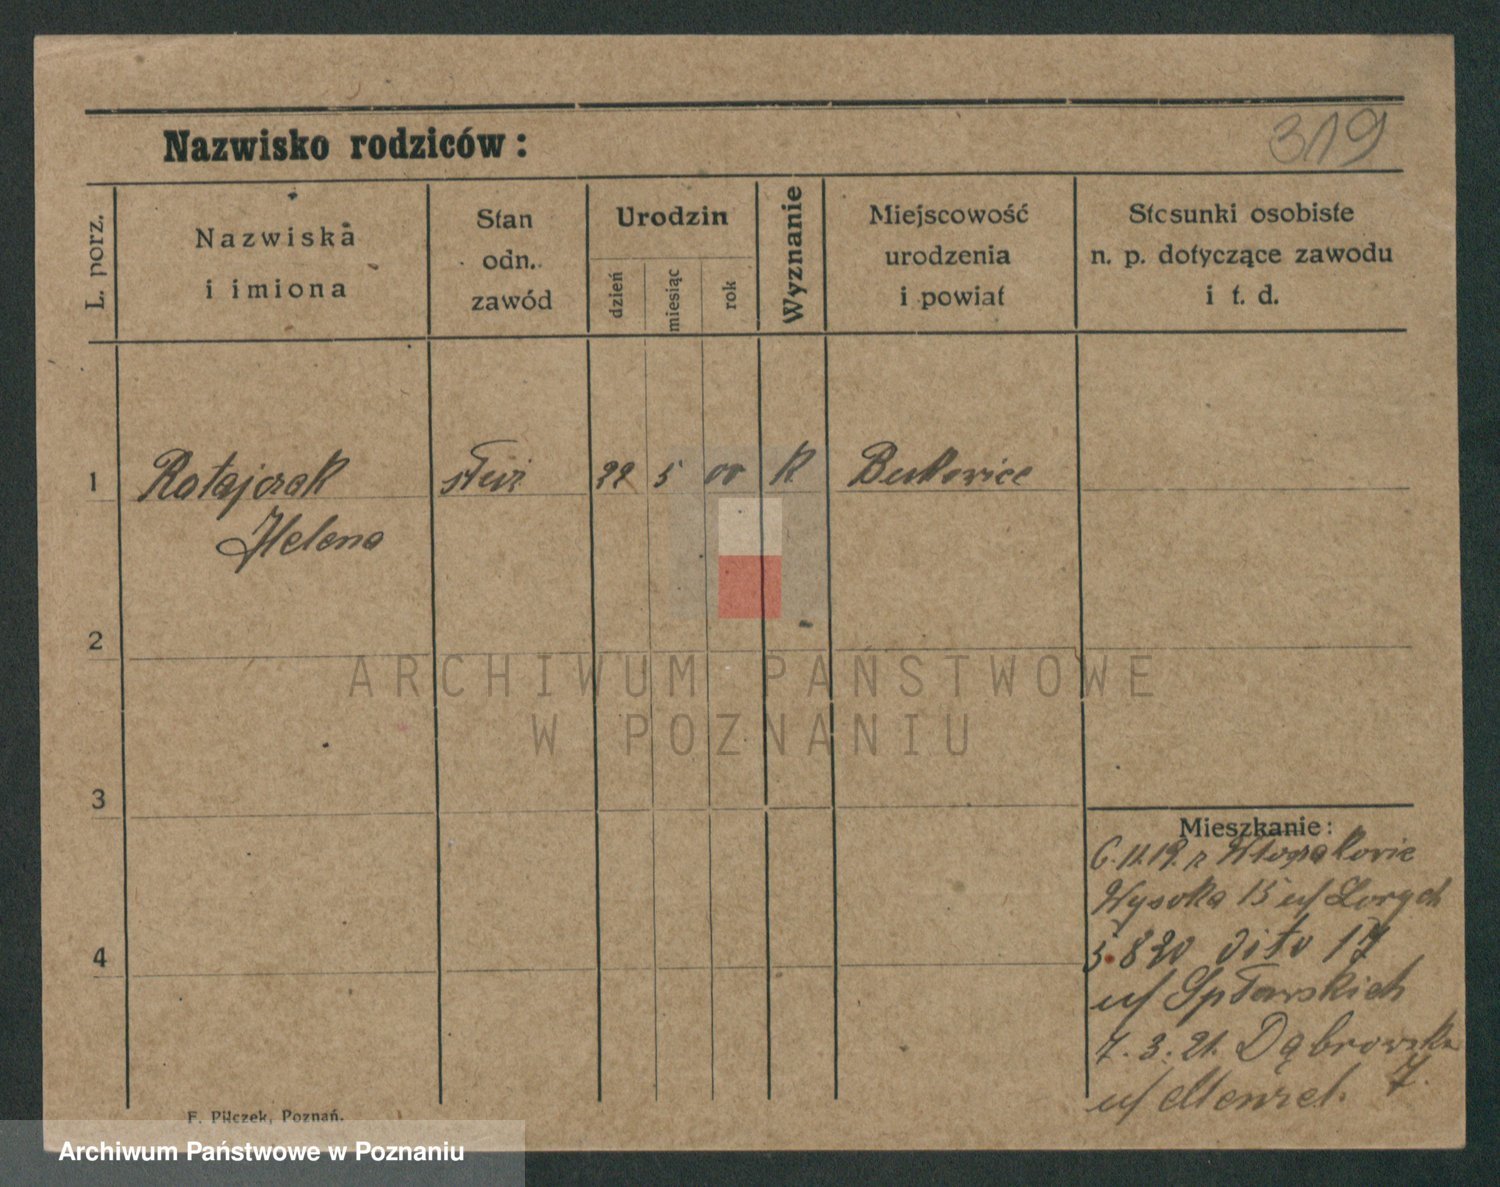 319
Nazwisko rodziców:
L. porz.
Nazwiska
i imiona
Stan
odn.
zawód
Urodzin
dzień
miesiąc
rok
Wyznanie
Miejscowość
urodzenia
i powiat
Stosunki osobiste
n. p. dotyczące zawodu
i t. d.
1 Ratajczak służ 22 5 00 K Bukowice
Helena
2
3
4
ARCHIWUM PAŃSTWOWE
W POZNANIU
Mieszkanie:
6.11.19. z
Wysoka 15 u/
5.8 20 dito 17
u/
7.3.21. Dąbrowska
u/ Menzel. 7.
F. Pilczek, Poznań.
Archiwum Państwowe w Poznaniu